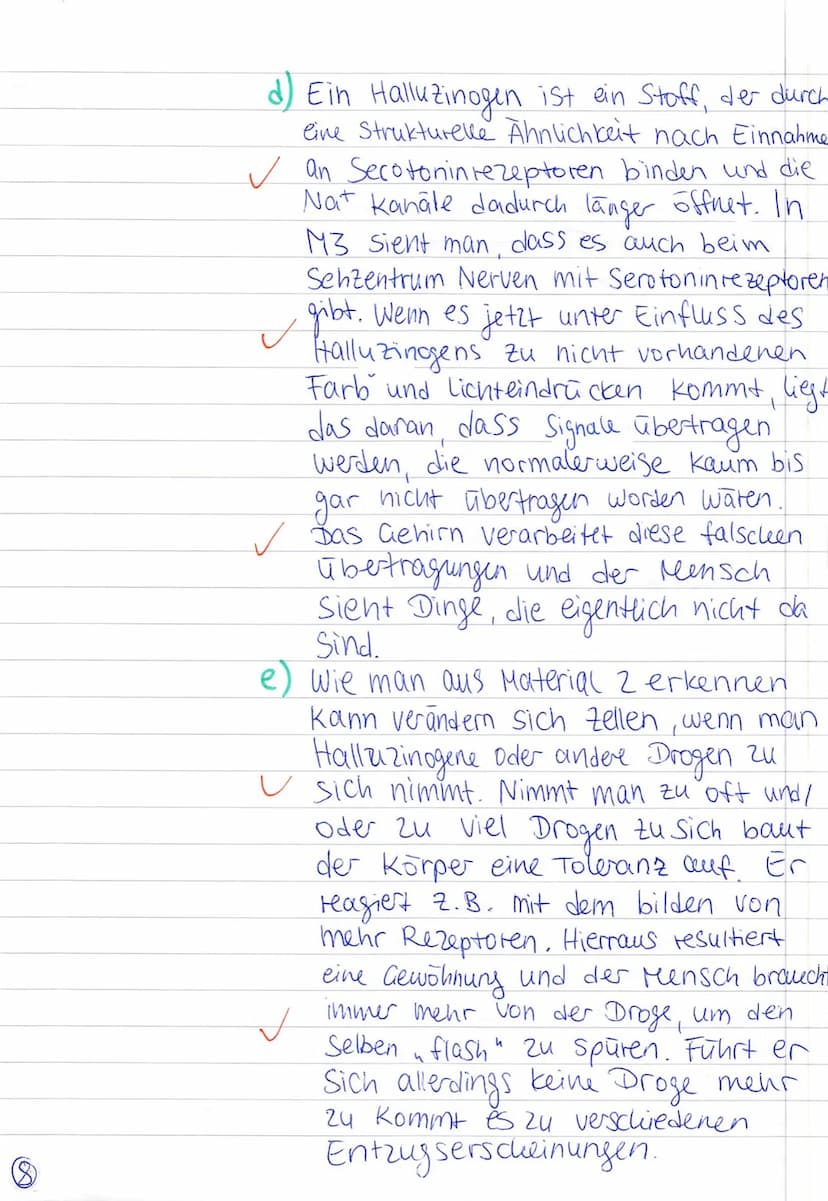 d) Ein Halluzinogen ist ein Stoff, der durch
eine Strukturelle Ähnlichkeit nach Einnahme
an Secotoninrezeptoren binden und die
Na⁺ Kanäle dadurch länger öffnet. In
M3 sieht man, dass es auch beim
Sehzentrum Nerven mit Serotoninrezeptoren
gibt. Wenn es jetzt unter Einfluss des
Halluzinogens zu nicht vorhandenen
Farb- und Lichteindrücken kommt, liegt
das daran, dass Signale übertragen
werden, die normalerweise kaum bis
gar nicht übertragen worden wären.
Das Gehirn verarbeitet diese falschen
Übertragungen und der Mensch
sieht Dinge, die eigentlich nicht da
sind.
e) Wie man aus Material 2 erkennen
kann verändern sich Zellen, wenn man
Halluzinogene oder andere Drogen zu
sich nimmt. Nimmt man zu oft und/
oder zu viel Drogen zu sich baut
der Körper eine Toleranz auf. Er
reagiert z.B. mit dem bilden von
mehr Rezeptoren. Hierraus resultiert
eine Gewöhnung und der Mensch braucht
immer mehr von der Droge, um den
Selben „flash" zu spüren. Führt er
sich allerdings keine Droge mehr
zu kommt es zu verschiedenen
Entzugserscheinungen.
8